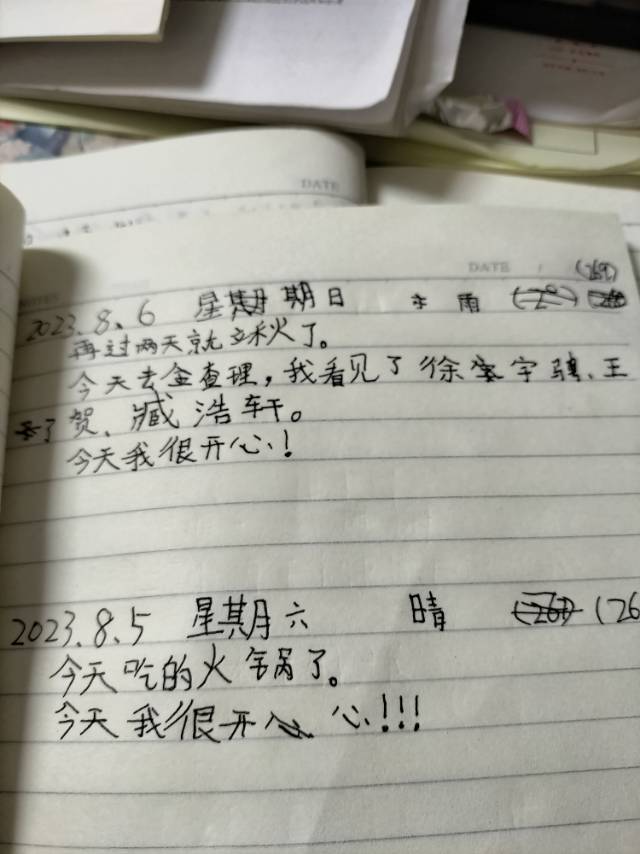 DATE
DATE
(269)
2023.8.6 星期日 雨
再过两天就立秋了。
今天去金查理，我看见了徐宇骐、王
子贺、臧浩轩。
今天我很开心！
2023.8.5 星期六 晴 (26
今天吃的火锅了。
今天我很开心!!!